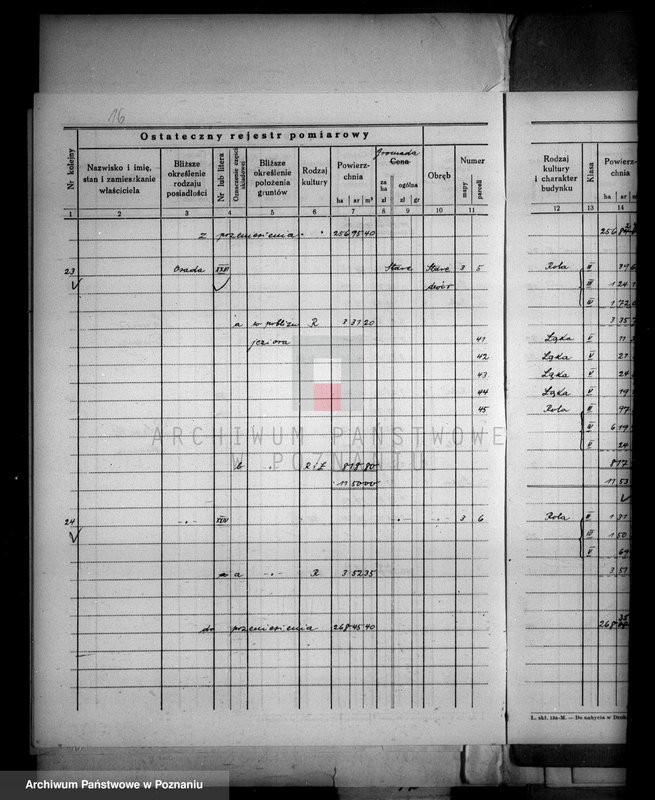 16
Ostateczny rejestr pomiarowy
Nr kolejny
Nazwisko i imię,
stan i zamieszkanie
właściciela
Bliższe
określenie
rodzaju
posiadłości
Nr lub litera
Oznaczenie części
składowej
Bliższe
określenie
położenia
gruntów
Rodzaj
kultury
Powierz-
chnia
ha ar m²
Gromada
Cena
za
ha
zł
ogólna
zł gr
Obręb
Numer
mapy
parceli
Rodzaj
kultury
i charakter
budynku
Klasa
Powierz-
chnia
ha ar
1 2 3 4 5 6 7 8 9 10 11 12 13 14
z przeniesienia 256 95 40
23 Osada XXIII Stare Stare 3 5 Rola III
dwór III 1 24
III 1 72
a w pobliżu R 3 31 20 3 35
jeziora 41 Łąka V 11
42 Łąka V 21
43 Łąka V 24
44 Łąka V 19
45 Rola III 97
IV 6 19
V 24
b " R i Ł 8 18 80 817
11 50 00 11 53
24 -"- XXIV -"- -"- 3 6 Rola III 1 31
IV 1 50
V 69
a -"- R 3 52 35 3 51
do przeniesienia 268 45 40 268
L. skł. 13a-M. — Do nabycia w Druk
ARCHIWUM PAŃSTWOWE
W POZNANIU
Archiwum Państwowe w Poznaniu